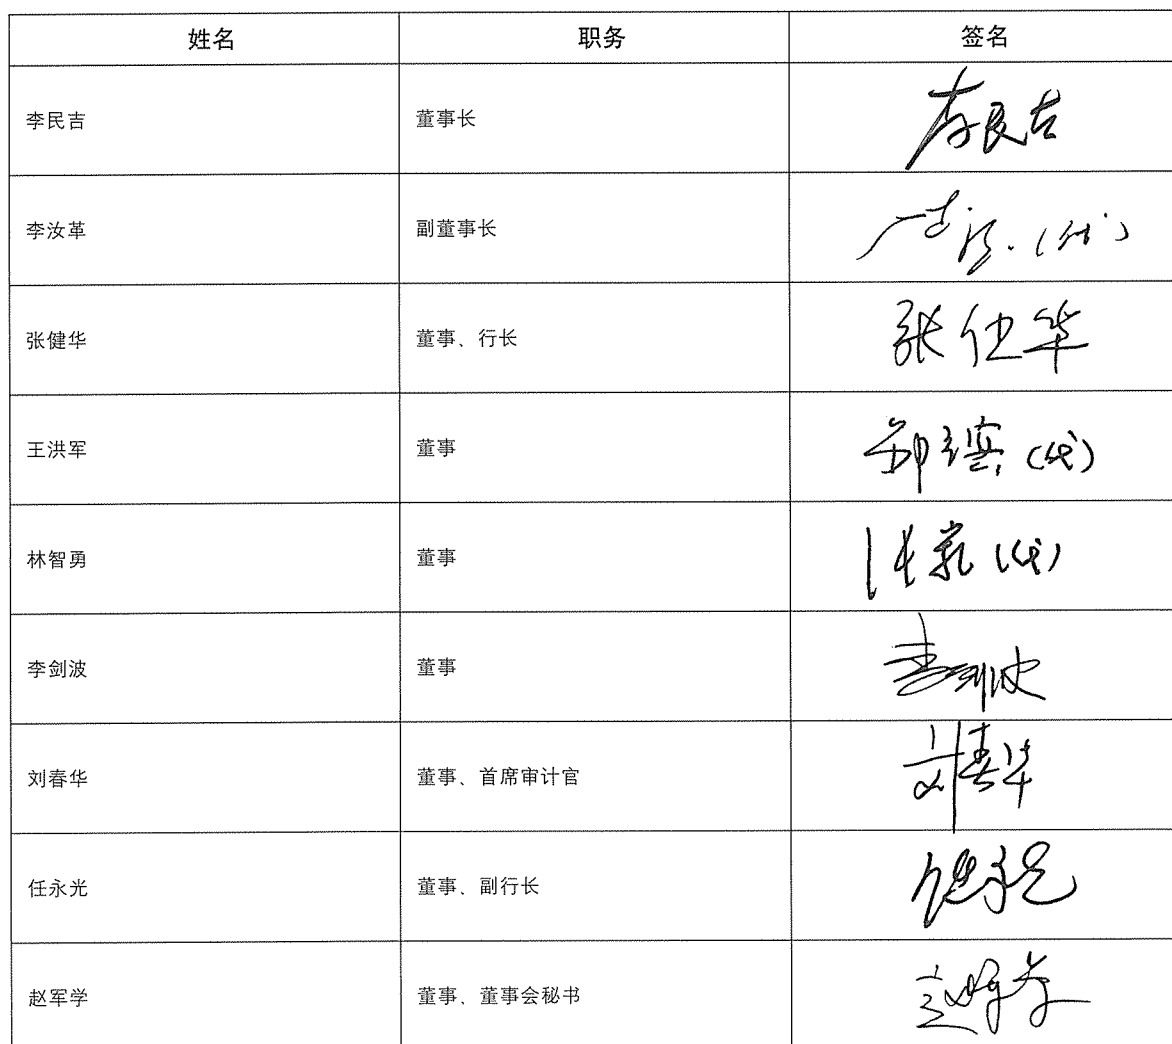 姓名 职务 签名
李民吉 董事长 李民吉
李汝革 副董事长 (代)
张健华 董事、行长 张健华
王洪军 董事 (代)
林智勇 董事 (代)
李剑波 董事 李剑波
刘春华 董事、首席审计官 刘春华
任永光 董事、副行长 任永光
赵军学 董事、董事会秘书 赵军学